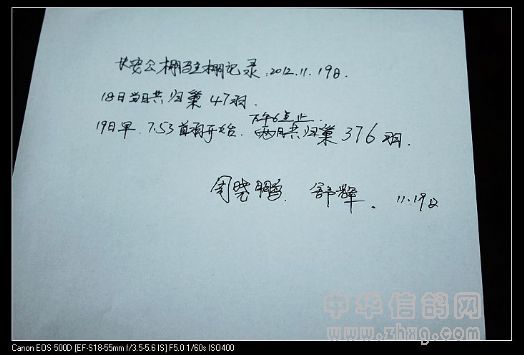 长安公棚驻棚记录.2012.11.19日.
18日当日共归巢47羽.
下午6点止
19日早.7.53首羽开始.两日共归巢376羽.
周晓鹏. 舒辉. 11.19日
中华信鸽网
www.zhxg.com
Canon EOS 500D [EF-S18-55mm f/3.5-5.6 IS] F5.0 1/60s ISO400